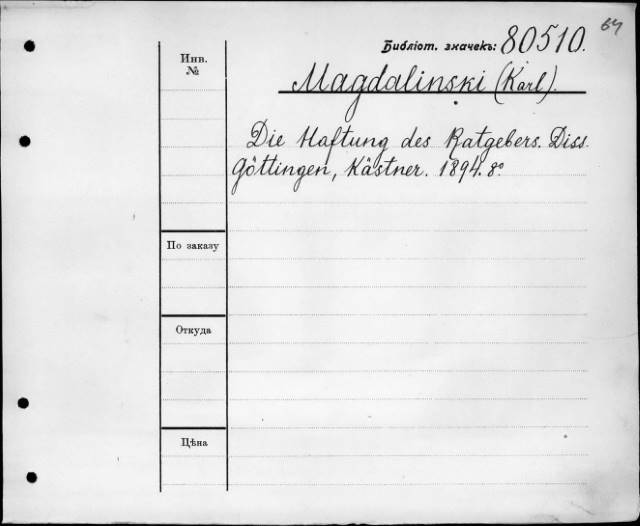 64
Библіот. значекъ: 80510.
Инв.
№
Magdalinski (Karl).
Die Haftung des Ratgebers. Diss.
Göttingen, Kästner. 1894. 8°
По заказу
Откуда
Цѣна